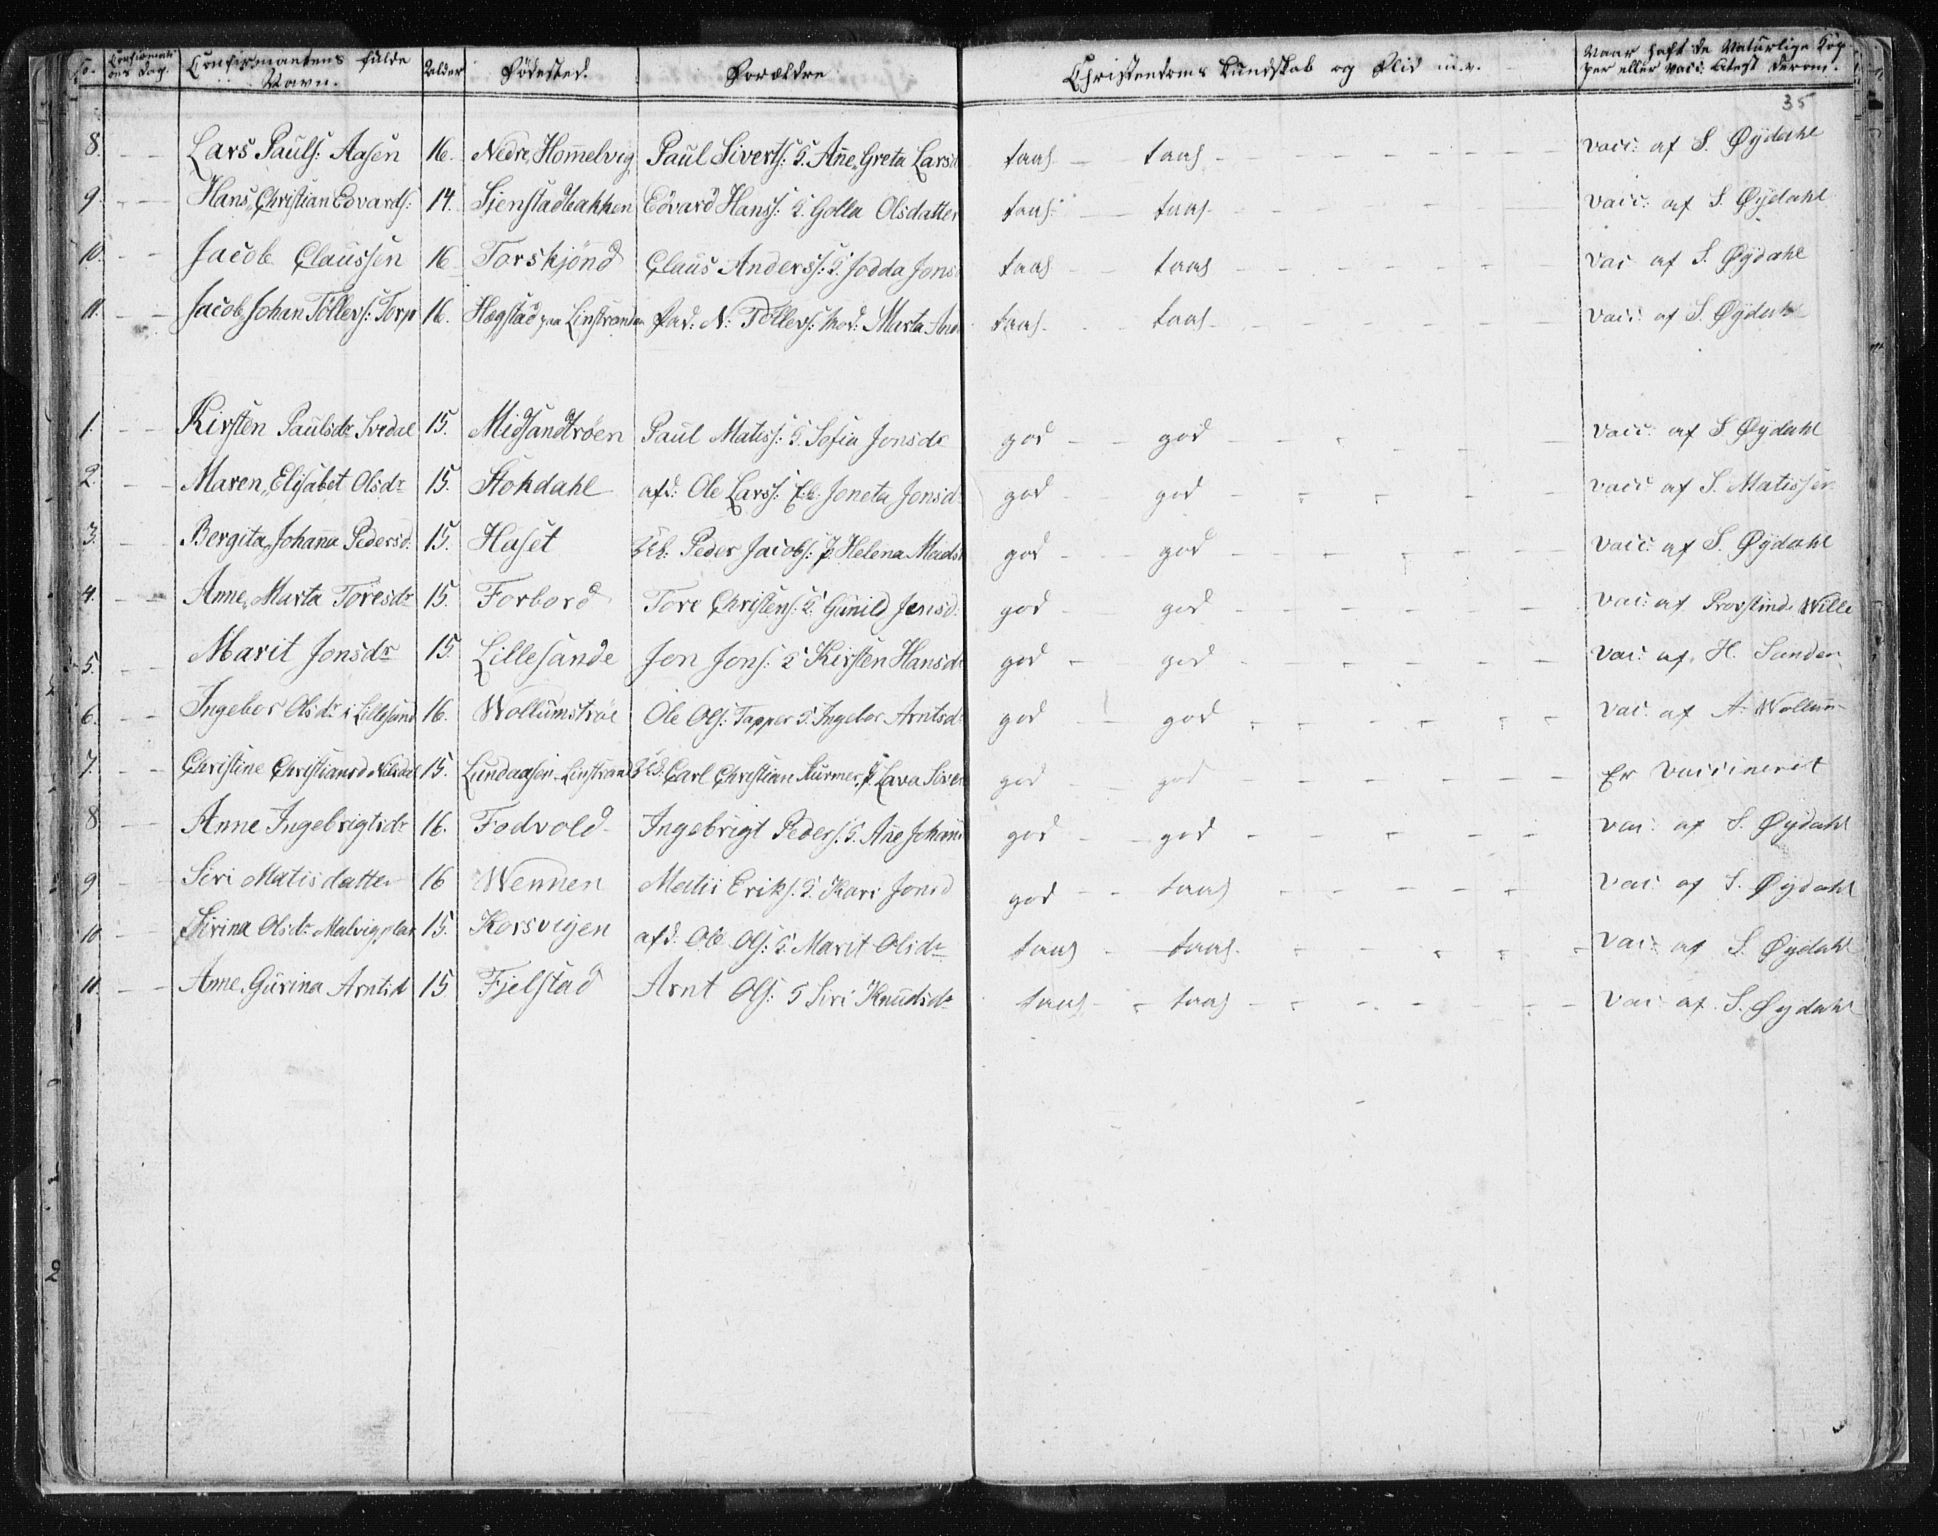 No. Confirmati ons Dag. Confirmantens fulde Navn. Alder Fødested. Forældre Christendoms Kundskab og Flid m.v. Naar haft de Naturlige Kop per eller vacc: Attest derom.
35
8. Lars Pauls: Aasen 16. Nedre, Hommelvig Paul Siverts: & Ane, Greta Larsd taal. taal. vacc: af S. Øydahl
9. Hans, Christian Edvards: 14. Sienstadbakken Edvard Hanss: & Golla Olsdatter taal. taal. vacc: af S. Øydahl
10. Jacob Claussen 16 Torskjønd Claus Anderss: & Jodda Jons taal taal vac af S. Øydahl
11. Jacob, Johan Tøllers: Torp 16. Hogstad paa Linstranden fad: N: Tøllers: Mod: Marta And taal. taal. vacc: af S. Øydahl
1. Kirsten Paulsdr Svedal 15. Midsandtrøen Paul Matiss: & Sofia Jonsdr god god vacc: af S Øydahl
2. Maren, Elisabet Olsdr 15. Stokdahl afd: Ole Larss: Joneta Jonsd god god vacc: af S. Matissen
3. Bergita, Johana Pedersd. 15. Haset Peder Jacobs: Helena Mads god god vacc: af S. Øydahl
4. Anne, Marta Toresdr 15. Forbord Tore Christens: & Gunild Jensd. god god vac: af Provstinde Wille
5. Marit Jonsdr 15. Lillesande Jon Jons: & Kirsten Hansdr god god vac: af H. Sanden
6. Ingebor Olsdr i Lillesand 16. Wollumstrøe Ole Ols: Tapper & Ingebor Arntsd god god vac: af A: Wollum
7. Christine Christiansd 15. Lundaasen Linstrand Carl Christian Sturmer, Lava Siver god god Er Vaccineret
8 Anne Ingebrigtsdr 16. Fodvold Ingebrigt Peders: & Ane Johan god god vac: af S. Øydahl
9 Siri Matisdatter 16 Wennen Matis Eriks: & Kari Jonsd god taal vac: af S. Øydahl
10 Sirina Olsdr Malvigplas 15. Korsvigen afd. Ole Ols: & Marit Olsdr taal taal. vac: af S. Øydahl
11. Anne, Gurina Arntsd 15 Fjelstad Arnt Ols: & Siri Knudsdr taal. taal vac: af S. Øydahl